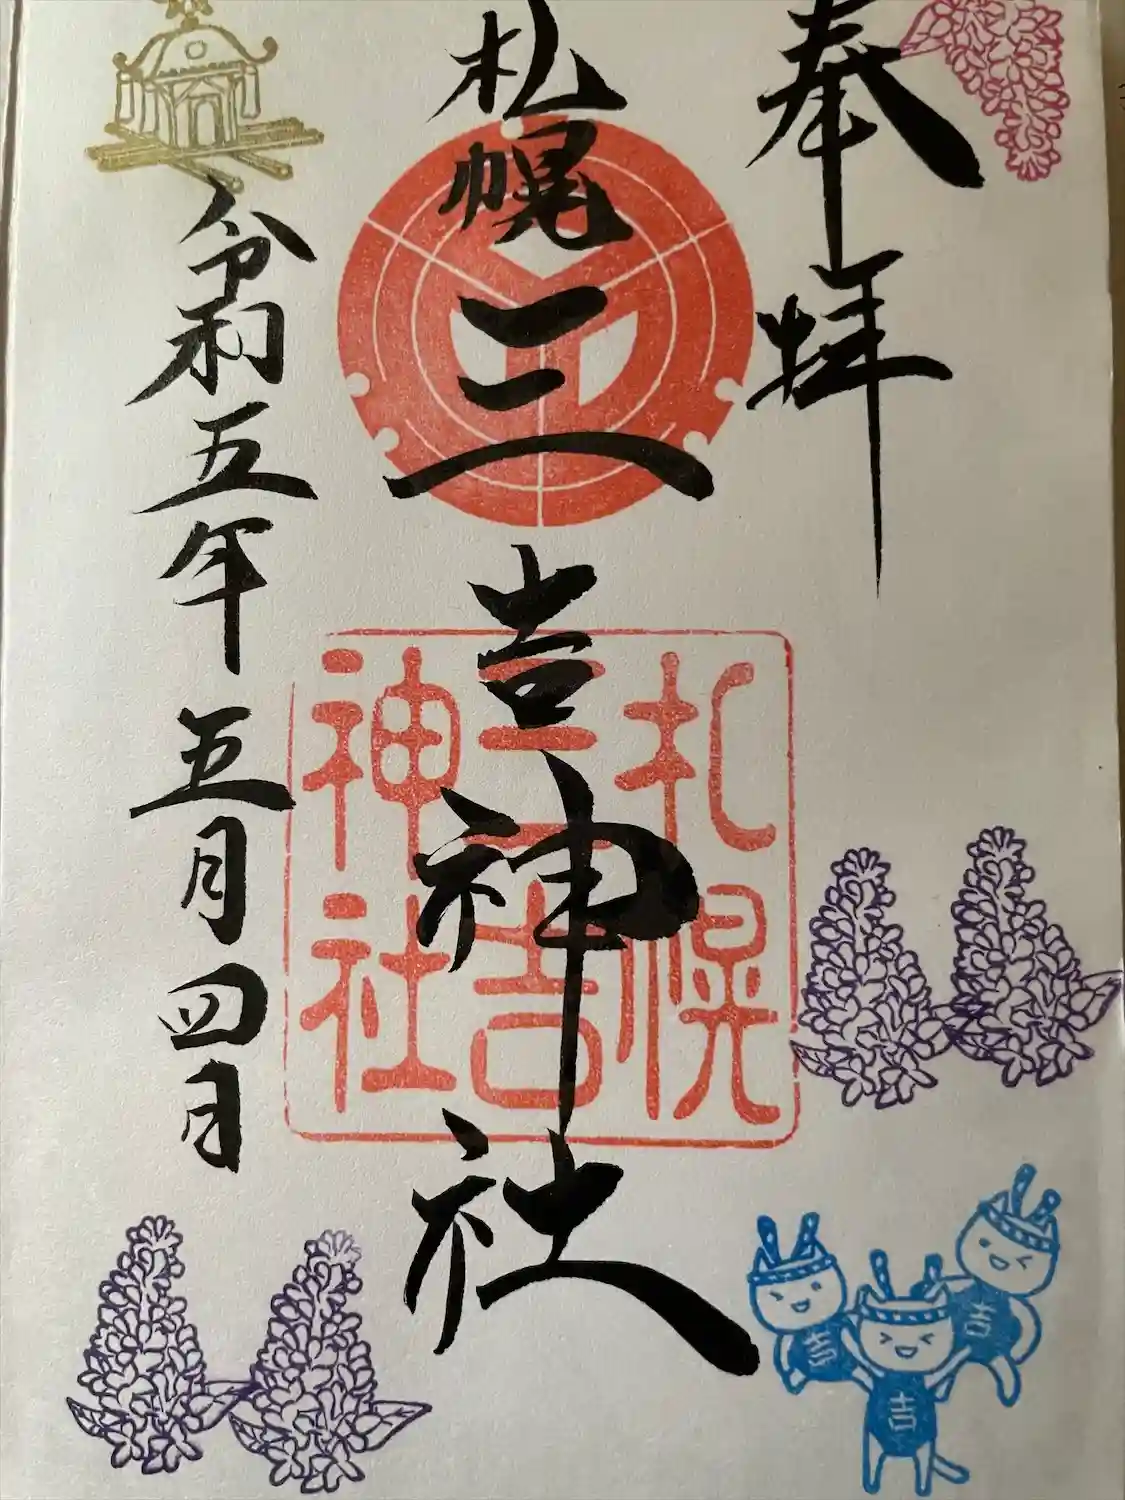 奉拝
札幌三吉神社
令和五年五月四日
札幌
三吉
神社
吉
吉
吉